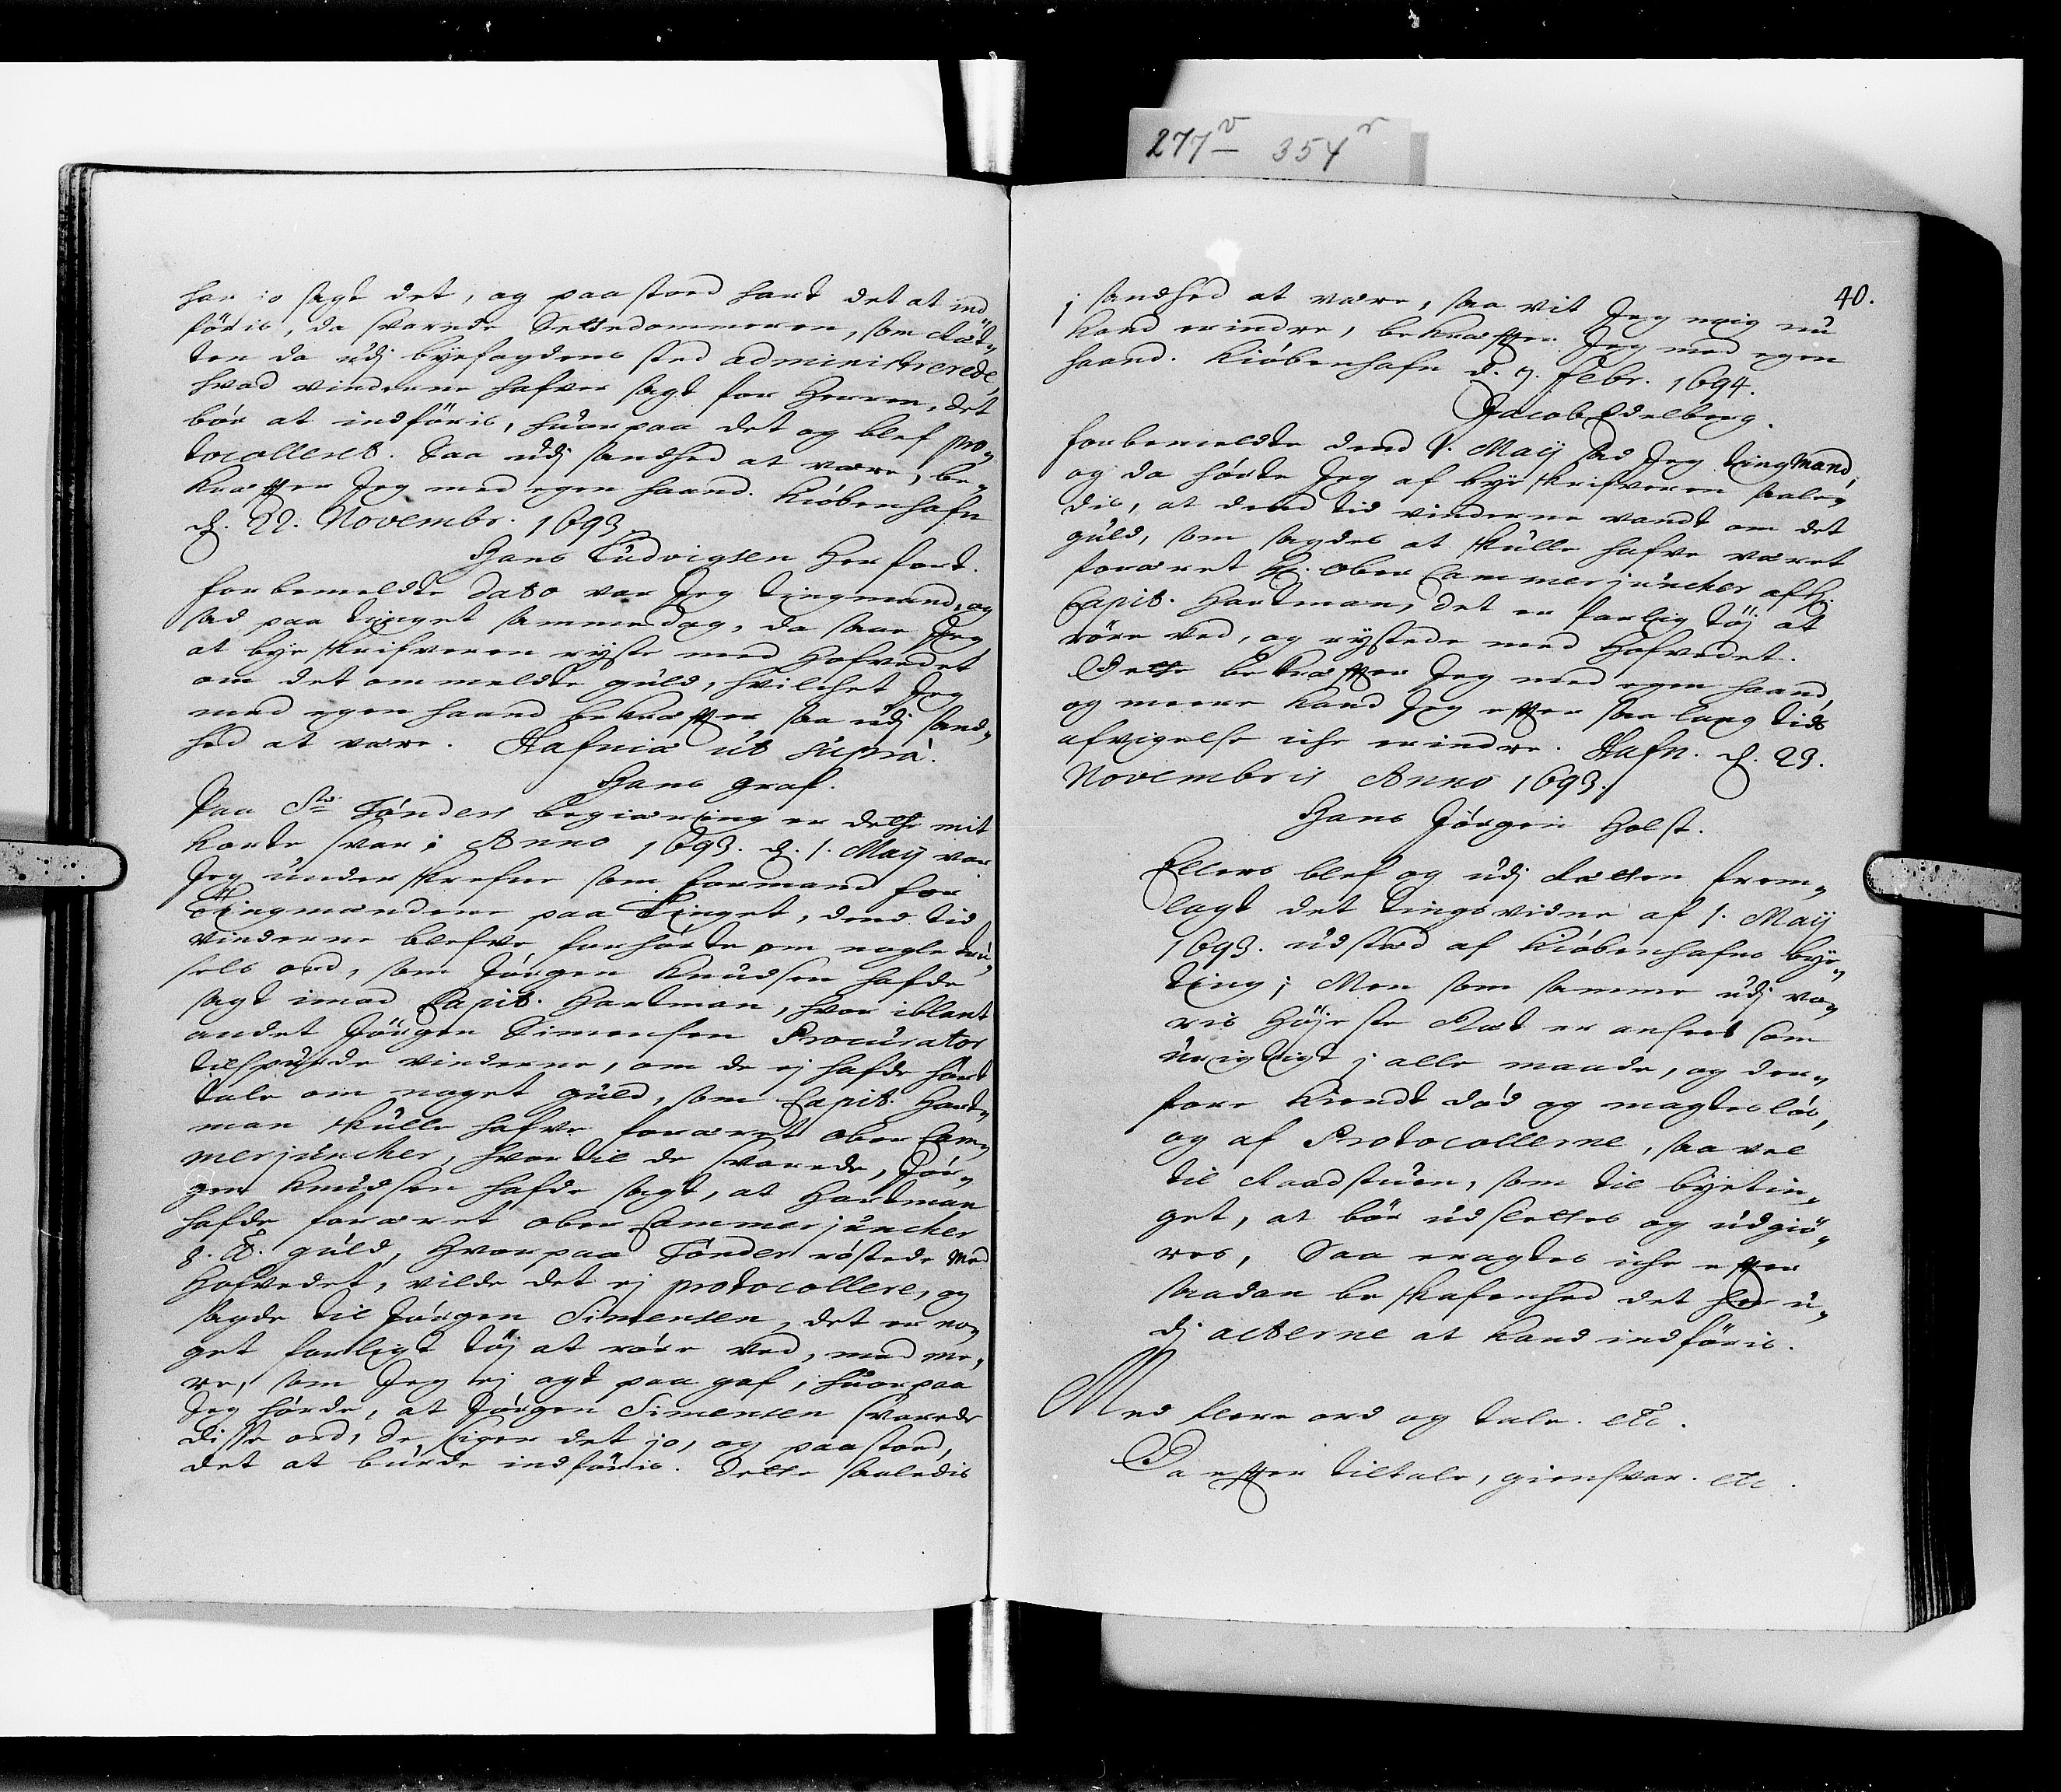 277v 354r
har jo sagt det, og paastoed hart det at ind
föris, da svarede Settedommeren, som Ræt„
ten da udj byefogdens sted administrerede,
hvad vinderne hafver sagt for Herren, det
bör at indföris, huorpaa det og blef pro„
tocolleret. Saa udj sandhed at være, be„
kræffter Jeg med egen haand. Kiöbenhafn
d. 22. Novembr. 1693.
Hans Ludvigsen Herfort.
forbemeldte dato var Jeg tingmand, og
sad paa tinget sammedag, da saae Jeg
at bye skrifveren ryste med Hofvedet
om det ommeldte guld, hvilchet Jeg
med egen haand bekræffter saa udj sand„
hed at være. Hafniæ ut supra.
Hans graf.
Paa Sr. Tönders begiæring er dette mit
korte svar: Anno 1693. d. 1. Maij var
Jeg underskrefne som formand for
Tingmændene paa Tinget, dend tid
vinderne blefve forhörte om nogle tru„
sels ord, som Jörgen Knudsen hafde
sagt imod Capit. Hartman, hvor iblant
andet Jörgen Simensen Procurator
tilspurde vinderne, om de ej hafde hört
tale om noget guld, som Capit. Hart„
man skulle hafve foræret ober Cam„
merjuncker, hvortil de svarede, Jör„
gen Knudsen hafde sagt, at Hartman
hafde foræret ober Cammerjuncker
8. ℔. guld, hvorpaa Tönder röstede med
Hofvedet, vilde det ej protocollere, og
sagde til Jörgen Simensen, det er no„
get farligt töj at röre ved, med me„
re, som Jeg ej agt paa gaf, huorpaa
Jeg hörde, at Jörgen Simensen svarede
disse ord, de siger det jo, og paastoed,
det at burde indföris. Dette saaledis
40.
j sandhed at være, saa vit Jeg mig nu
kand erindre, bekræffter Jeg med egen
haand. Kiöbenhafn d. 7. febr. 1694.
Jacob Edelberg.
forbemeldte dend 1. Maij sad Jeg tingmand,
og da hörte Jeg af bye skrifveren saale„
dis, at dend tid vinderne vandt om det
guld, som sagdes at skulle hafve været
foræret Hr. ober Cammerjuncker af Hr.
Capit. Hartman, det er farlig töj at
röre ved, og rystede med Hofvedet.
Dette bekræffter Jeg med egen haand,
og meere kand Jeg effter saa lang tids
afvigelse iche erindre. Hafn. d. 23.
Novembris Anno 1693.
Hans Jörgen Holst.
Ellers blef og udj Rætten frem„
lagt det tingsvidne af 1. Maij
1693. udsted af Kiöbenhafns bye„
ting; Men som samme udj vo„
ris Höjeste Ræt er anseet som
urigtigt j alle maade, og der„
fore kiendt död og magteslös,
og af Protocollerne, saavel
til Raadstuen, som til byetin„
get, at bör udslettes og udgiö„
res, Saa eragtes iche effter
saadan beskafenhed det her u„
dj acterne at kand indföris.
Med flere ord og tale. etc.
Da effter tiltale, giensvar. etc.